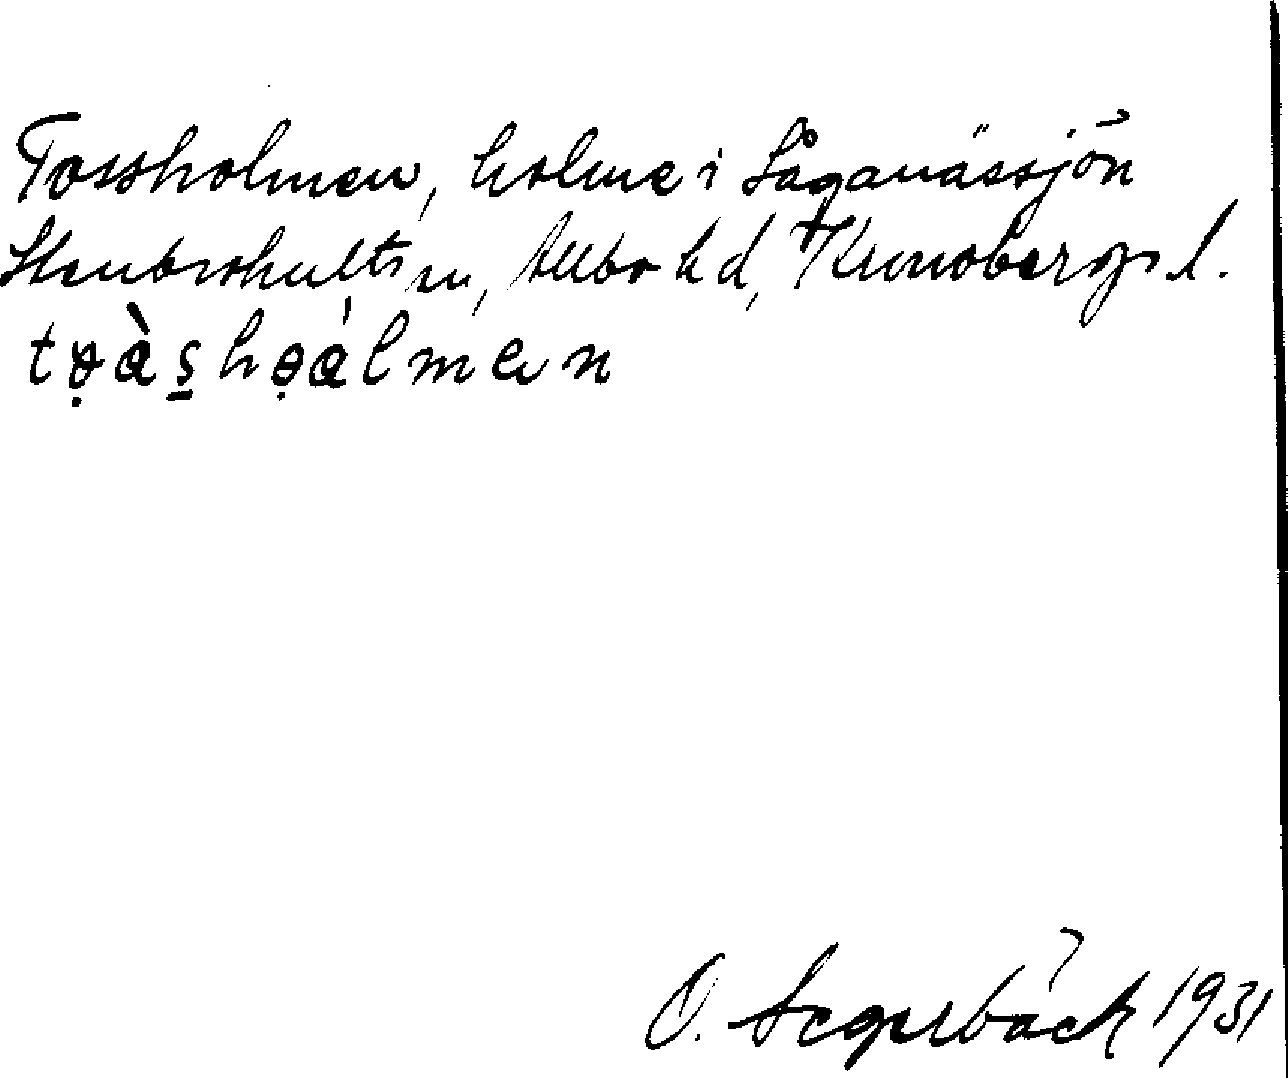 Tossholmen, holme i Såganässjön
Stenbrohults sn, Allbo hd, Kronobergs l.
tọàs̱họálmen
O. Segerbäck 1931